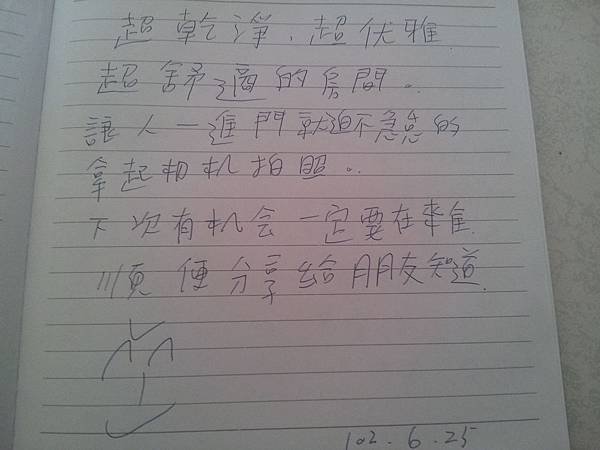 超乾淨、超优雅
超舒適的房間..
讓人一進門就迫不急的
拿起相机拍照..
下次有机会 一定要在來住.
順便分享給朋友知道.
102.6.25